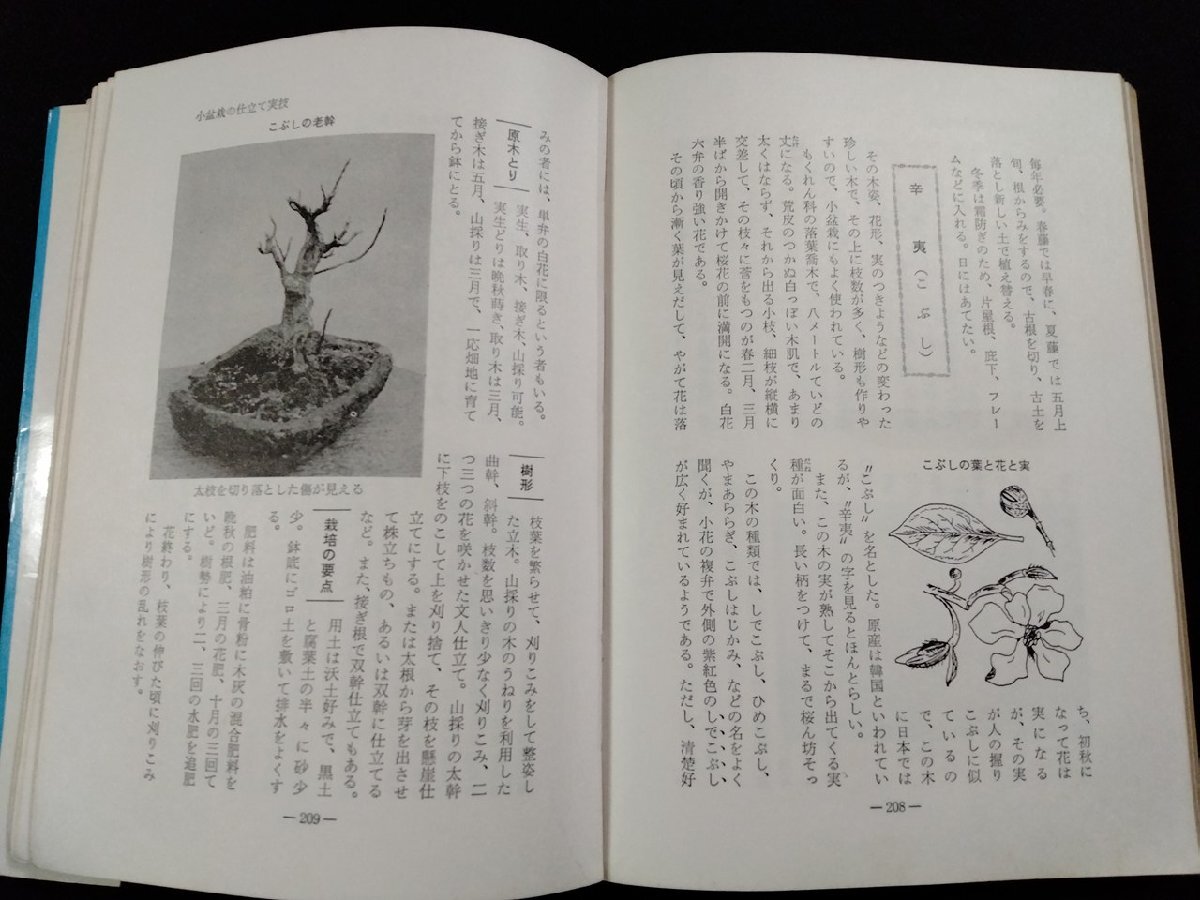 毎年必要。春藤では早春に、夏藤では五月上
旬、根からみをするので、古根を切り、古土を
落とし新しい土で植え替える。
冬季は霜防ぎのため、片屋根、庇下、フレー
ムなどに入れる。日にはあてたい。
辛夷(こぶし)
その木姿、花形、実のつきようなどの変わった
珍しい木で、その上に枝数が多く、樹形も作りや
すいので、小盆栽にもよく使われている。
もくれん科の落葉喬木で、八メートルていどの
丈になる。荒皮のつかぬ白っぽい木肌で、あまり
太くはならず、それから出る小枝、細枝が縦横に
交差して、その枝々に莟をもつのが春二月、三月
半ばから開きかけて桜花の前に満開になる。白花
六弁の香り強い花である。
その頃から漸く葉が見えだして、やがて花は落
こぶしの葉と花と実
ち、初秋に
なって花は
実になる
が、その実
が人の握り
こぶしに似
ているの
で、この木
に日本では
〝こぶし〟を名とした。原産は韓国といわれてい
るが、〝辛夷〟の字を見るとほんとらしい。
また、この木の実が熟してそこから出てくる実
種が面白い。長い柄をつけて、まるで桜ん坊そっ
くり。
この木の種類では、しでこぶし、ひめこぶし、
やまあららぎ、こぶしはじかみ、などの名をよく
聞くが、小花の複弁で外側の紫紅色のしでこぶし
が広く好まれているようである。ただし、清楚好
—208—
小盆栽の仕立て実技
みの者には、単弁の白花に限るという者もいる。
原木とり
実生、取り木、接ぎ木、山採り可能。
実生どりは晩秋蒔き、取り木は三月、
接ぎ木は五月、山採りは三月で、一応畑地に育て
てから鉢にとる。
こぶしの老幹
太枝を切り落とした傷が見える
樹形
枝葉を繁らせて、刈りこみをして整姿し
た立木。山採りの木のうねりを利用した
曲幹、斜幹。枝数を思いきり少なく刈りこみ、二
つ三つの花を咲かせた文人仕立て。山採りの太幹
に下枝をのこして上を刈り捨て、その枝を懸崖仕
立てにする。または太根から芽を出させ
て株立ちもの、あるいは双幹に仕立てる
など。また、接ぎ根で双幹仕立てもある。
栽培の要点
用土は沃土好みで、黒土
と腐葉土の半々に砂少
少。鉢底にゴロ土を敷いて排水をよくす
る。
肥料は油粕に骨粉に木灰の混合肥料を
晩秋の根肥、三月の花肥、十月の三回て
いど。樹勢により二、三回の水肥を追肥
にする。
花終わり、枝葉の伸びた頃に刈りこみ
により樹形の乱れをなおす。
—209—